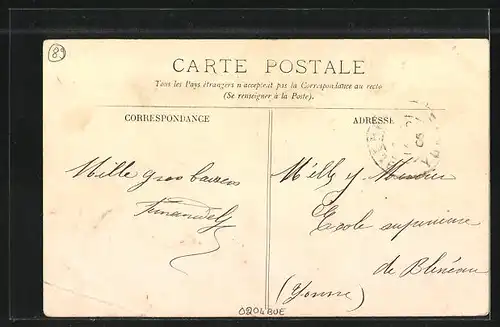 89
CARTE POSTALE
Tous les Pays étrangers n'acceptent pas la Correspondance au recto
(Se renseigner à la Poste).
CORRESPONDANCE
ADRESSE
Mille gros baisers
Melle Y
École supérieure
de Bléneau
(Yonne)